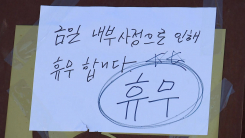 금일 내부사정으로 인해
휴무 합니다
휴무